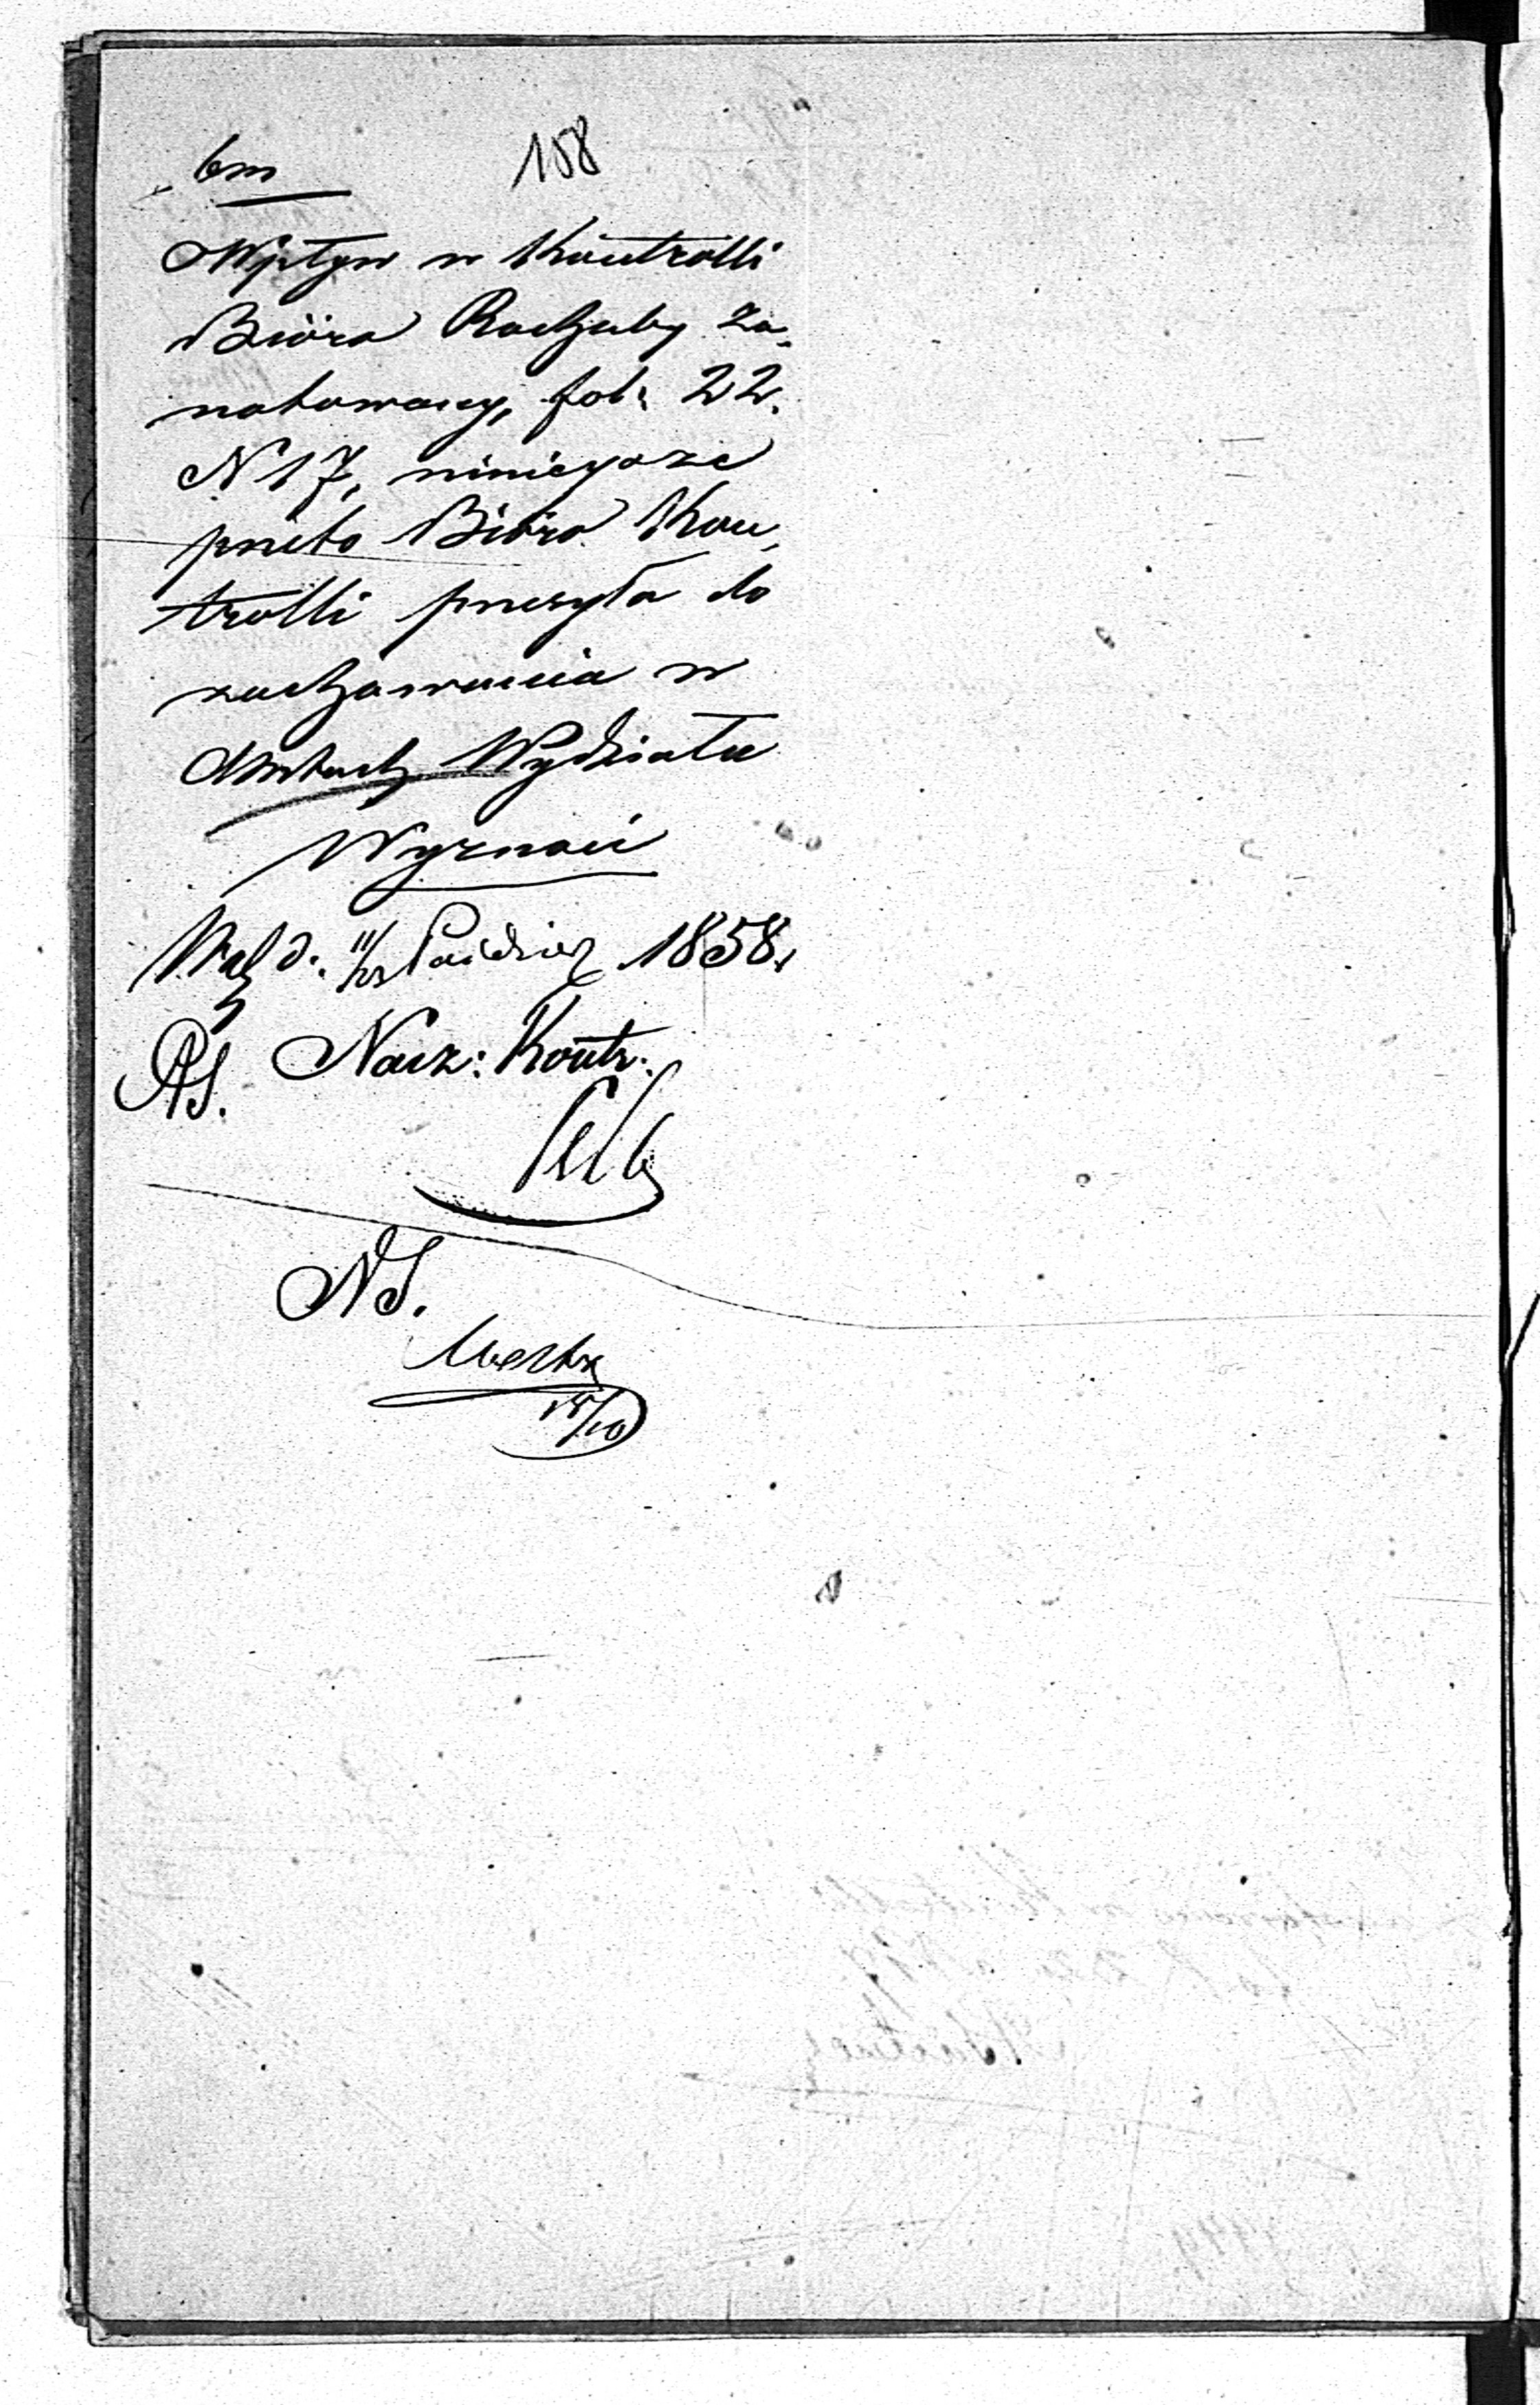 158
Wpływ w Kontrolli
Biōra Rachuby za-
notowany, fol: 22.
N 17, niniejsze
przeto Biōro Kon-
trolli przesyła do
zachowania w
Aktach Wydziału
Wyznań
d. 11/23 Paździer 1858.
AS. Nacz: Kontr:
NS.
15/10